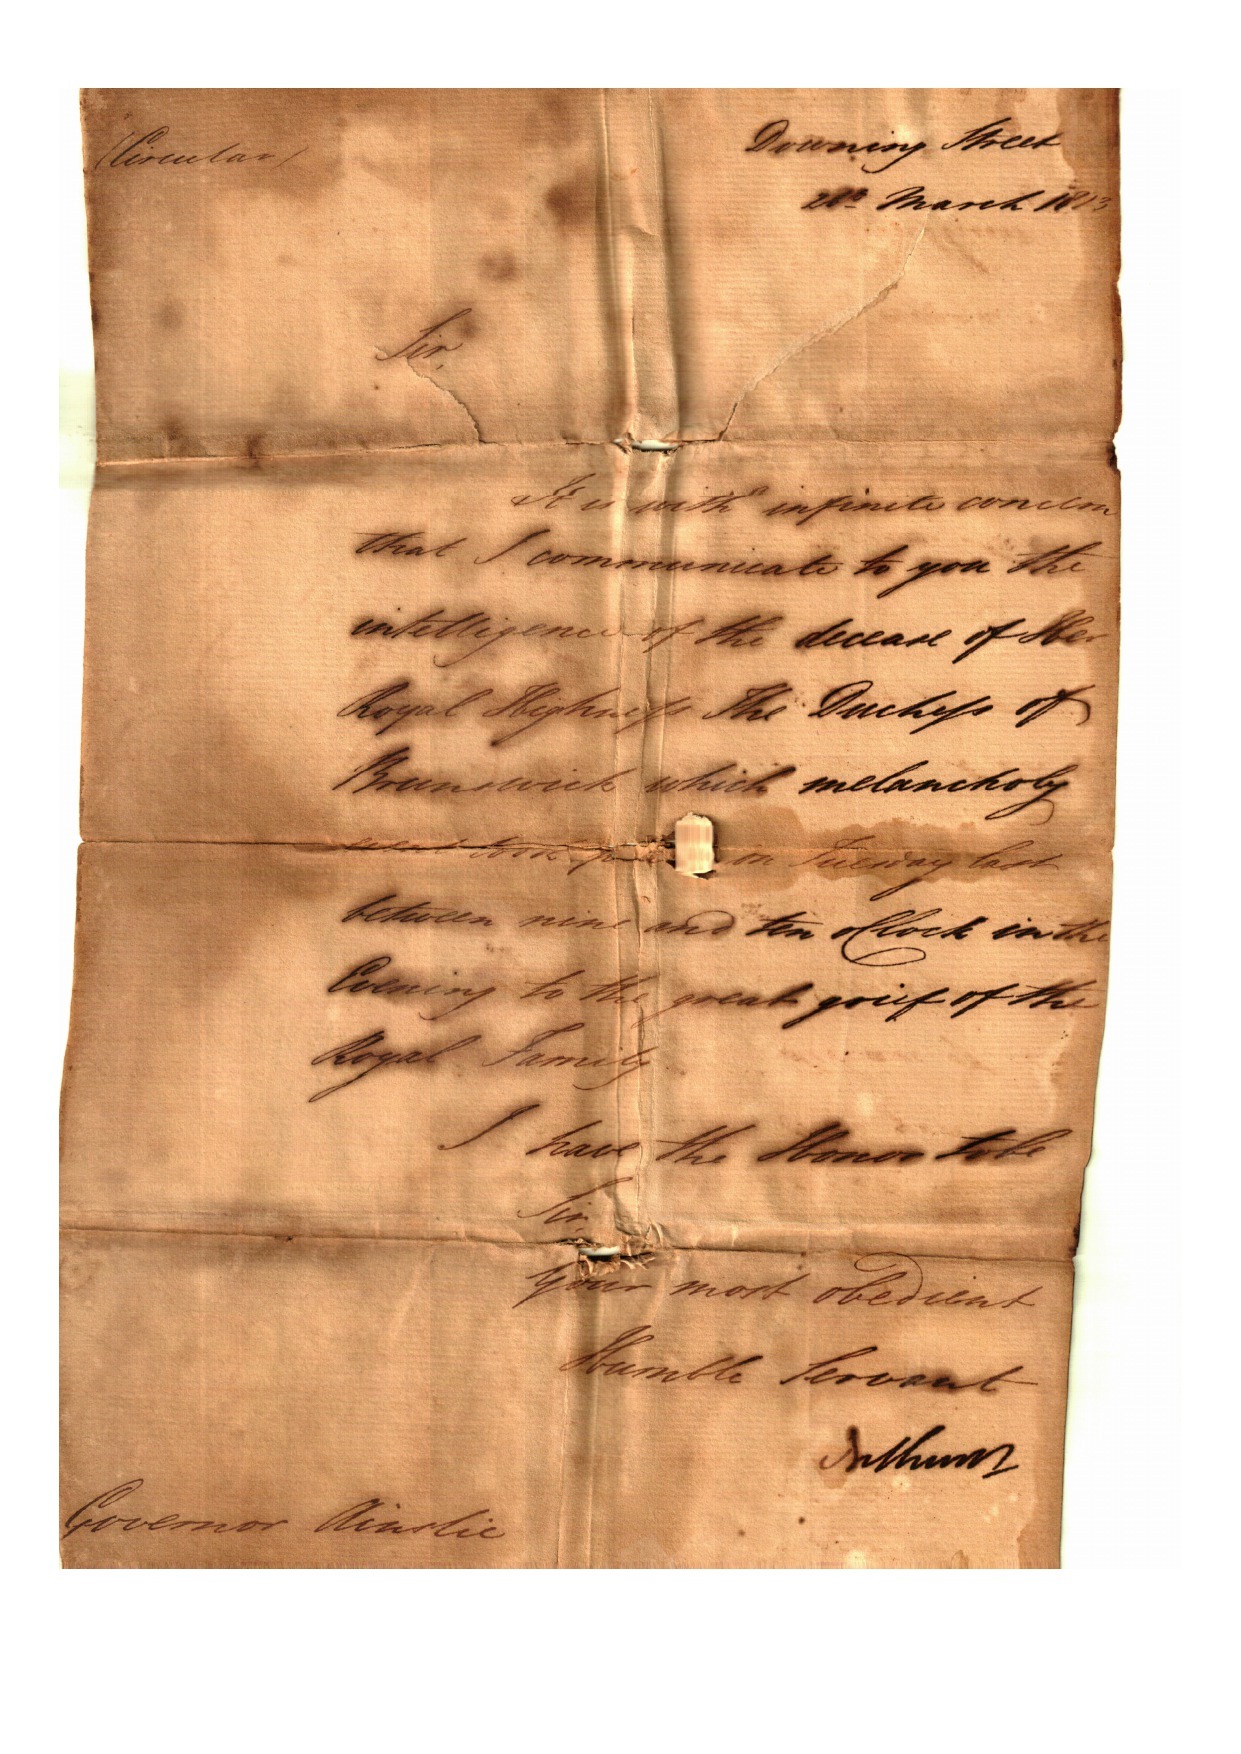 (Circular)
Downing Street
28th March 1813
Sir,
It is with infinite concern
that I communicate to you the
intelligence of the decease of Her
Royal Highness The Duchess of
Brunswick which melancholy
event took on Tuesday last
between nine and ten oClock in the
Evening to the great grief of the
Royal Family
I have the Honor to be
Sir,
Your most obedient
Humble Servant
Bathurst
Governor Ainslie